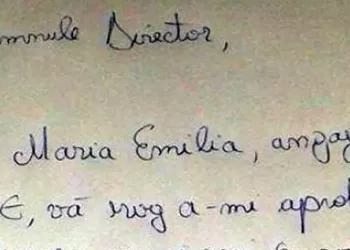 omnule Director,
Maria Emilia, angaj
E, vă rog a-mi apro